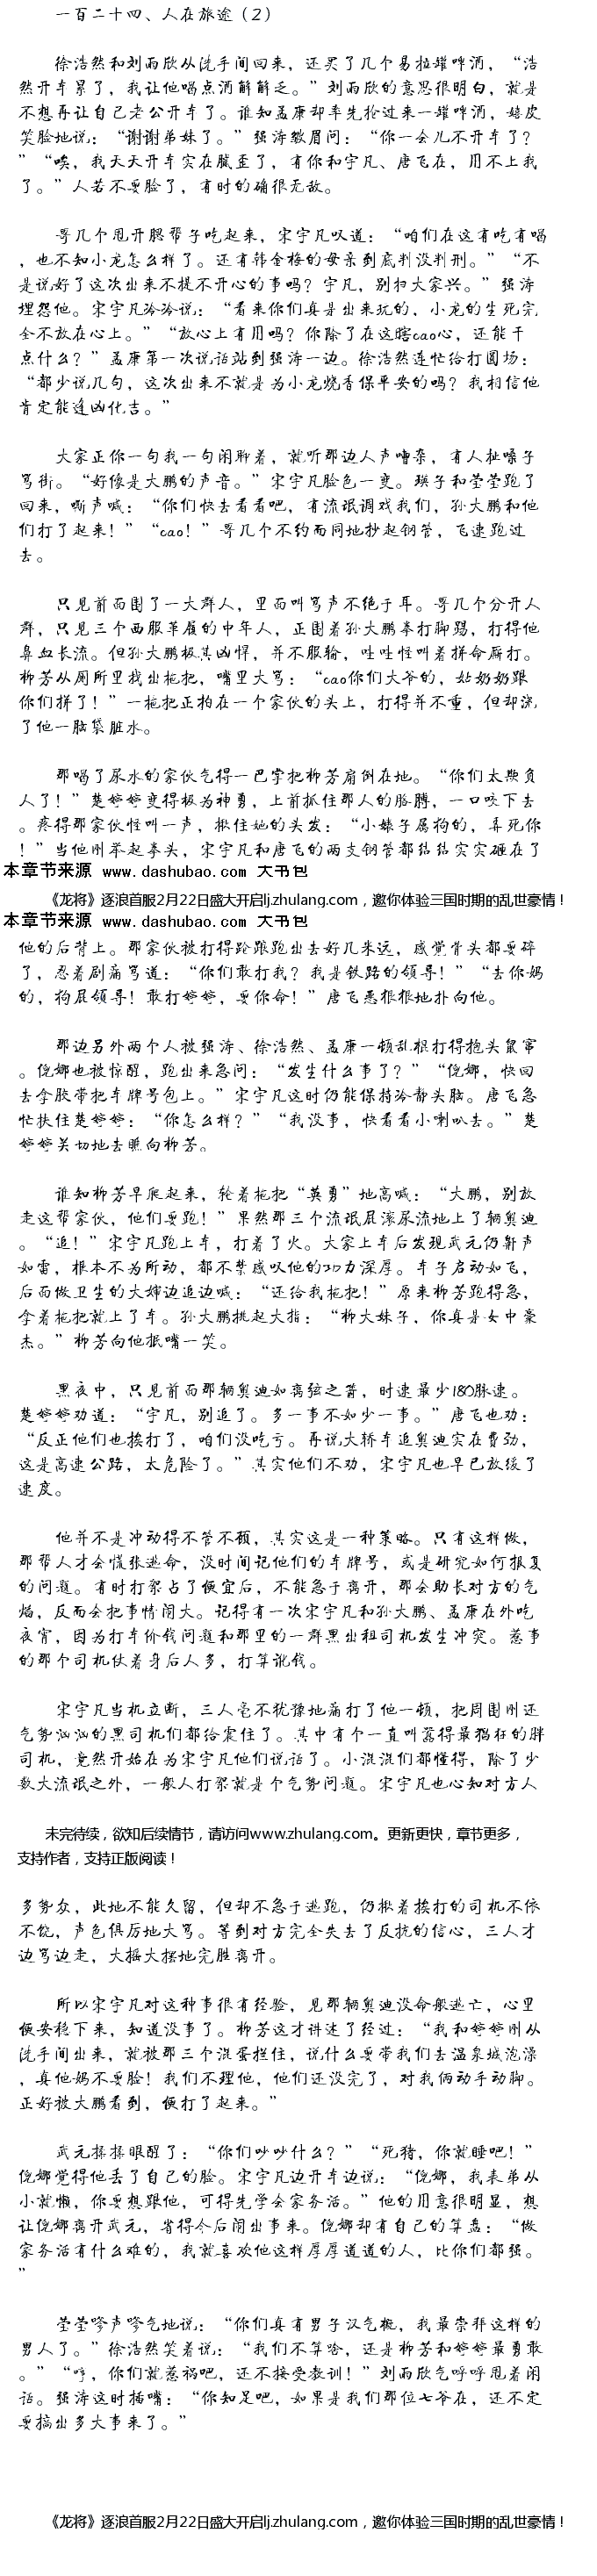 一百二十四、人在旅途（2）
徐浩然和刘雨欣从洗手间回来，还买了几个易拉罐啤酒，“浩
然开车累了，我让他喝点酒解解乏。”刘雨欣的意思很明白，就是
不想再让自己老公开车了。谁知孟康却率先抢过来一罐啤酒，嬉皮
笑脸地说：“谢谢弟妹了。”强涛皱眉问：“你一会儿不开车了？
”“唉，我天天开车实在腻歪了，有你和宇凡、唐飞在，用不上我
了。”人若不要脸了，有时的确很无敌。
哥几个甩开腮帮子吃起来，宋宇凡叹道：“咱们在这有吃有喝
，也不知小龙怎么样了。还有韩金梅的母亲到底判没判刑。”“不
是说好了这次出来不提不开心的事吗？宇凡，别扫大家兴。”强涛
埋怨他。宋宇凡冷冷说：“看来你们真是出来玩的，小龙的生死完
全不放在心上。”“放心上有用吗？你除了在这瞎cao心，还能干
点什么？”孟康第一次说话站到强涛一边。徐浩然连忙给打圆场：
“都少说几句，这次出来不就是为小龙烧香保平安的吗？我相信他
肯定能逢凶化吉。”
大家正你一句我一句闲聊着，就听那边人声嘈杂，有人扯嗓子
骂街。“好像是大鹏的声音。”宋宇凡脸色一变。瑛子和莹莹跑了
回来，嘶声喊：“你们快去看看吧，有流氓调戏我们，孙大鹏和他
们打了起来！”“cao！”哥几个不约而同地抄起钢管，飞速跑过
去。
只见前面围了一大群人，里面叫骂声不绝于耳。哥几个分开人
群，只见三个西服革履的中年人，正围着孙大鹏拳打脚踢，打得他
鼻血长流。但孙大鹏极其凶悍，并不服输，哇哇怪叫着拼命厮打。
柳芳从厕所里找出拖把，嘴里大骂：“cao你们大爷的，姑奶奶跟
你们拼了！”一拖把正拍在一个家伙的头上，打得并不重，但却流
了他一脑袋脏水。
那喝了尿水的家伙气得一巴掌把柳芳扇倒在地。“你们太欺负
人了！”楚婷婷变得极为神勇，上前抓住那人的胳膊，一口咬下去
。疼得那家伙怪叫一声，揪住她的头发：“小婊子属狗的，弄死你
！”当他刚举起拳头，宋宇凡和唐飞的两支钢管都结结实实砸在了
本章节来源 www.dashubao.com 大书包
《龙将》逐浪首服2月22日盛大开启lj.zhulang.com，邀你体验三国时期的乱世豪情！
本章节来源 www.dashubao.com 大书包
他的后背上。那家伙被打得踉跄跑出去好几米远，感觉骨头都要碎
了，忍着剧痛骂道：“你们敢打我？我是铁路的领导！”“去你妈
的，狗屁领导！敢打婷婷，要你命！”唐飞恶狠狠地扑向他。
那边另外两个人被强涛、徐浩然、孟康一顿乱棍打得抱头鼠窜
。倪娜也被惊醒，跑出来急问：“发生什么事了？”“倪娜，快回
去拿胶带把车牌号包上。”宋宇凡这时仍能保持冷静头脑。唐飞急
忙扶住楚婷婷：“你怎么样？”“我没事，快看看小喇叭去。”楚
婷婷关切地去瞧向柳芳。
谁知柳芳早爬起来，轮着拖把“英勇”地高喊：“大鹏，别放
走这帮家伙，他们要跑！”果然那三个流氓屁滚尿流地上了辆奥迪
。“追！”宋宇凡跑上车，打着了火。大家上车后发现武元仍鼾声
如雷，根本不为所动，都不禁感叹他的功力深厚。车子启动如飞，
后面做卫生的大婶边追边喊：“还给我拖把！”原来柳芳跑得急，
拿着拖把就上了车。孙大鹏挑起大指：“柳大妹子，你真是女中豪
杰。”柳芳向他抿嘴一笑。
黑夜中，只见前面那辆奥迪如离弦之箭，时速最少180脉速。
楚婷婷劝道：“宇凡，别追了。多一事不如少一事。”唐飞也劝：
“反正他们也挨打了，咱们没吃亏。再说大轿车追奥迪实在费劲，
这是高速公路，太危险了。”其实他们不劝，宋宇凡也早已放缓了
速度。
他并不是冲动得不管不顾，其实这是一种策略。只有这样做，
那帮人才会慌张逃命，没时间记他们的车牌号，或是研究如何报复
的问题。有时打架占了便宜后，不能急于离开，那会助长对方的气
焰，反而会把事情闹大。记得有一次宋宇凡和孙大鹏、孟康在外吃
夜宵，因为打车价钱问题和那里的一群黑出租司机发生冲突。惹事
的那个司机仗着身后人多，打算讹钱。
宋宇凡当机立断，三人毫不犹豫地痛打了他一顿，把周围刚还
气势汹汹的黑司机们都给震住了。其中有个一直叫嚣得最猖狂的胖
司机，竟然开始在为宋宇凡他们说话了。小混混们都懂得，除了少
数大流氓之外，一般人打架就是个气势问题。宋宇凡也心知对方人
未完待续，欲知后续情节，请访问www.zhulang.com。更新更快，章节更多，
支持作者，支持正版阅读！
多势众，此地不能久留，但却不急于逃跑，仍揪着挨打的司机不依
不饶，声色俱厉地大骂。等到对方完全失去了反抗的信心，三人才
边骂边走，大摇大摆地完胜离开。
所以宋宇凡对这种事很有经验，见那辆奥迪没命般逃亡，心里
便安稳下来，知道没事了。柳芳这才讲述了经过：“我和婷婷刚从
洗手间出来，就被那三个混蛋拦住，说什么要带我们去温泉城泡澡
，真他妈不要脸！我们不理他，他们还没完了，对我俩动手动脚。
正好被大鹏看到，便打了起来。”
武元揉揉眼醒了：“你们吵吵什么？”“死猪，你就睡吧！”
倪娜觉得他丢了自己的脸。宋宇凡边开车边说：“倪娜，我表弟从
小就懒，你要想跟他，可得先学会家务活。”他的用意很明显，想
让倪娜离开武元，省得今后闹出事来。倪娜却有自己的算盘：“做
家务活有什么难的，我就喜欢他这样厚厚道道的人，比你们都强。
”
莹莹嗲声嗲气地说：“你们真有男子汉气概，我最崇拜这样的
男人了。”徐浩然笑着说：“我们不算啥，还是柳芳和婷婷最勇敢
。”“哼，你们就惹祸吧，还不接受教训！”刘雨欣气呼呼甩着闲
话。强涛这时插嘴：“你知足吧，如果是我们那位七爷在，还不定
要搞出多大事来了。”
《龙将》逐浪首服2月22日盛大开启lj.zhulang.com，邀你体验三国时期的乱世豪情！